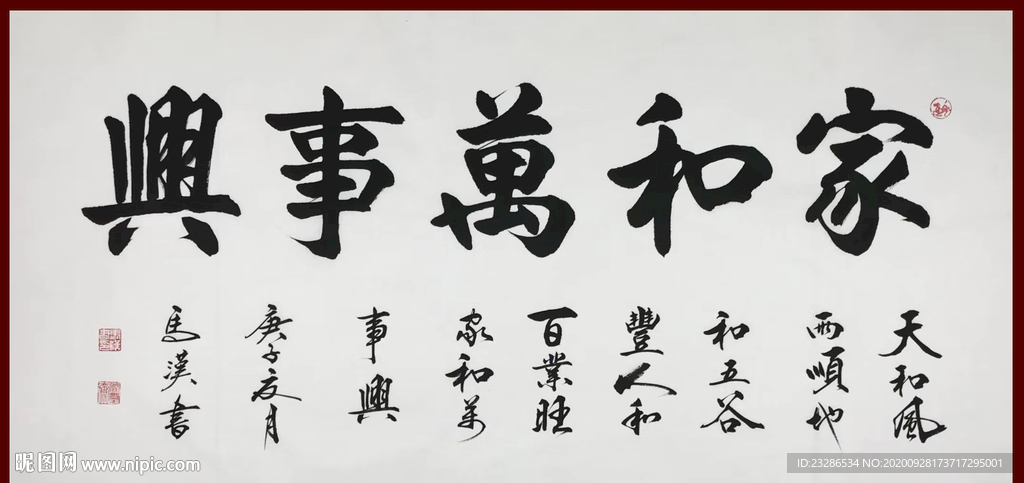 家和萬事興
天和風
雨順地
和五谷
豐人和
百業旺
家和萬
事興
庚子夏月
馬漢書
昵图网 www.nipic.com
ID:23286534 NO:20200928173717295001